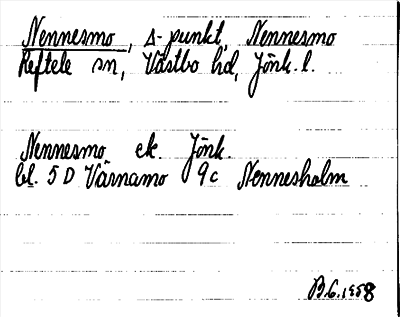 Nennesmo, Δ-punkt, Nennesmo
Reftele sn, Västbo hd, Jönk. l.
Nennesmo ek. Jönk.
bl. 5 D Värnamo 9c Nennesholm
B.G. 1958